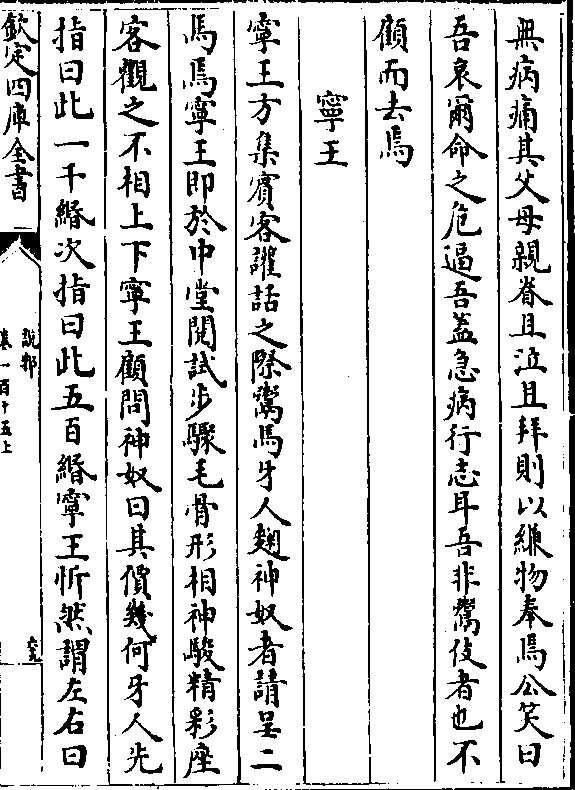 無病痛其父母親眷且泣且拜則以縑物奉焉公笑曰
吾哀爾命之危逼吾蓋急病行志耳吾非鬻伎者也不
顧而去焉
寧王
寧王方集賓客讌話之際鬻馬牙人麴神奴者請呈二
馬焉寧王即於中堂閱試步驟毛骨形相神駿精彩座
客觀之不相上下寧王顧問神奴曰其價幾何牙人先
指曰此一千緡次指曰此五百緡寧王忻然謂左右曰
欽定四庫全書
說郛
卷一百十五上